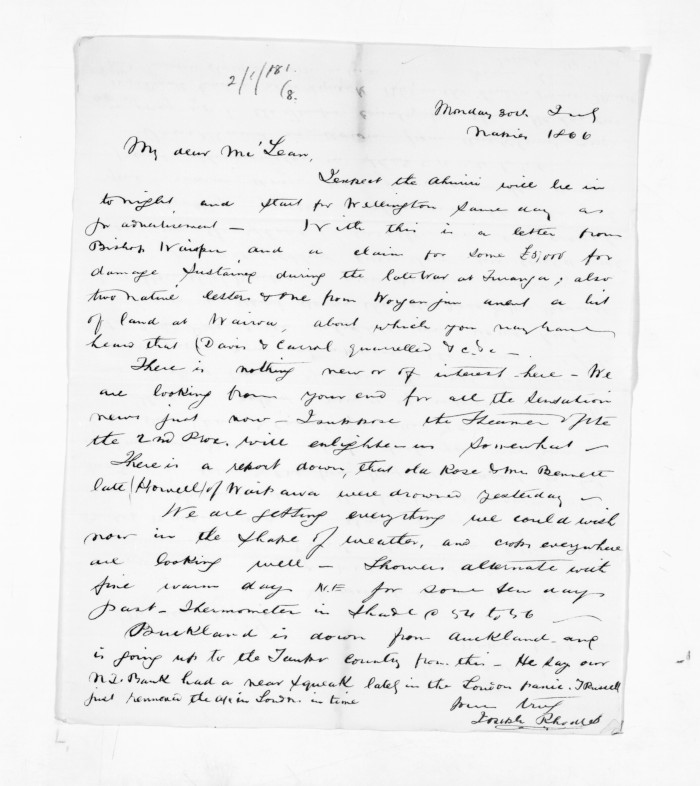 2/1/181
/8.
Monday 30th July
Napier 1866
My dear Mc'Lean,
I expect the Ahuriri will be in
tonight, and start for Wellington same day as
pr advertisement - With this is a letter from
Bishop and a claim for some £5,000 for
damage sustained during the late War at Turanga; also
two native letters & one from anent a bit
of land at Wairoa, about which you may have
heard that (Davis & Carrol quarrelled &c &c -
There is nothing new or of interest here - We
are looking from your end for all the sensation
news just now - I suppose the Steamer after
the 2nd Prox. will enlighten us somewhat -
There is a report down, that old Rose & Mr Bennett
late (Howell) of Waipawa were drowned yesterday -
We are getting everything we could wish
now in the shape of weather, and crops everywhere
are looking well - Showers alternate with
fine warm days N.E for some few days
past - Thermometer in Shade @ 54 to 56 -
Buckland is down from Auckland and
is going up to the Taupo country from this - He says our
N.Z. Bank had a near squeak lately in the London panic. T Russell
just in London in time
Yours truly
Joseph Rhodes